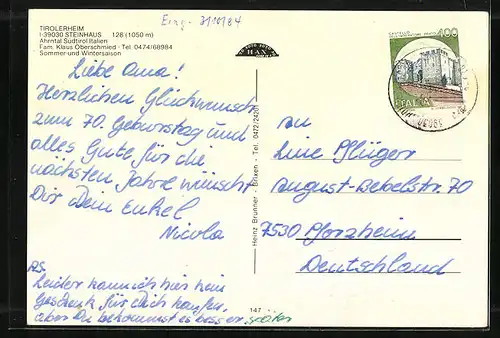 TIROLERHEIM
I-39030 STEINHAUS 128 (1050 m)
Ahrntal Südtirol Italien
Fam. Klaus Oberschmied · Tel. 0474/68984
Sommer- und Wintersaison
Eing. 3/10/84
HAX
400
ITALIA
Liebe Oma!
Herzlichen Glückwunsch
zum 70. Geburtstag und
alles Gute für die
nächsten Jahre wünscht
Dir Dein Enkel
Nicola
P.S.
Leider kann ich hier kein
Geschenk für Dich kaufen,
aber Du bekommst es bestimmt später
Heinz Brunner - Brixen - Tel. 0472/24301
147
An
Line Pflüger
August-Bebelstr. 70
7530 Pforzheim
Deutschland